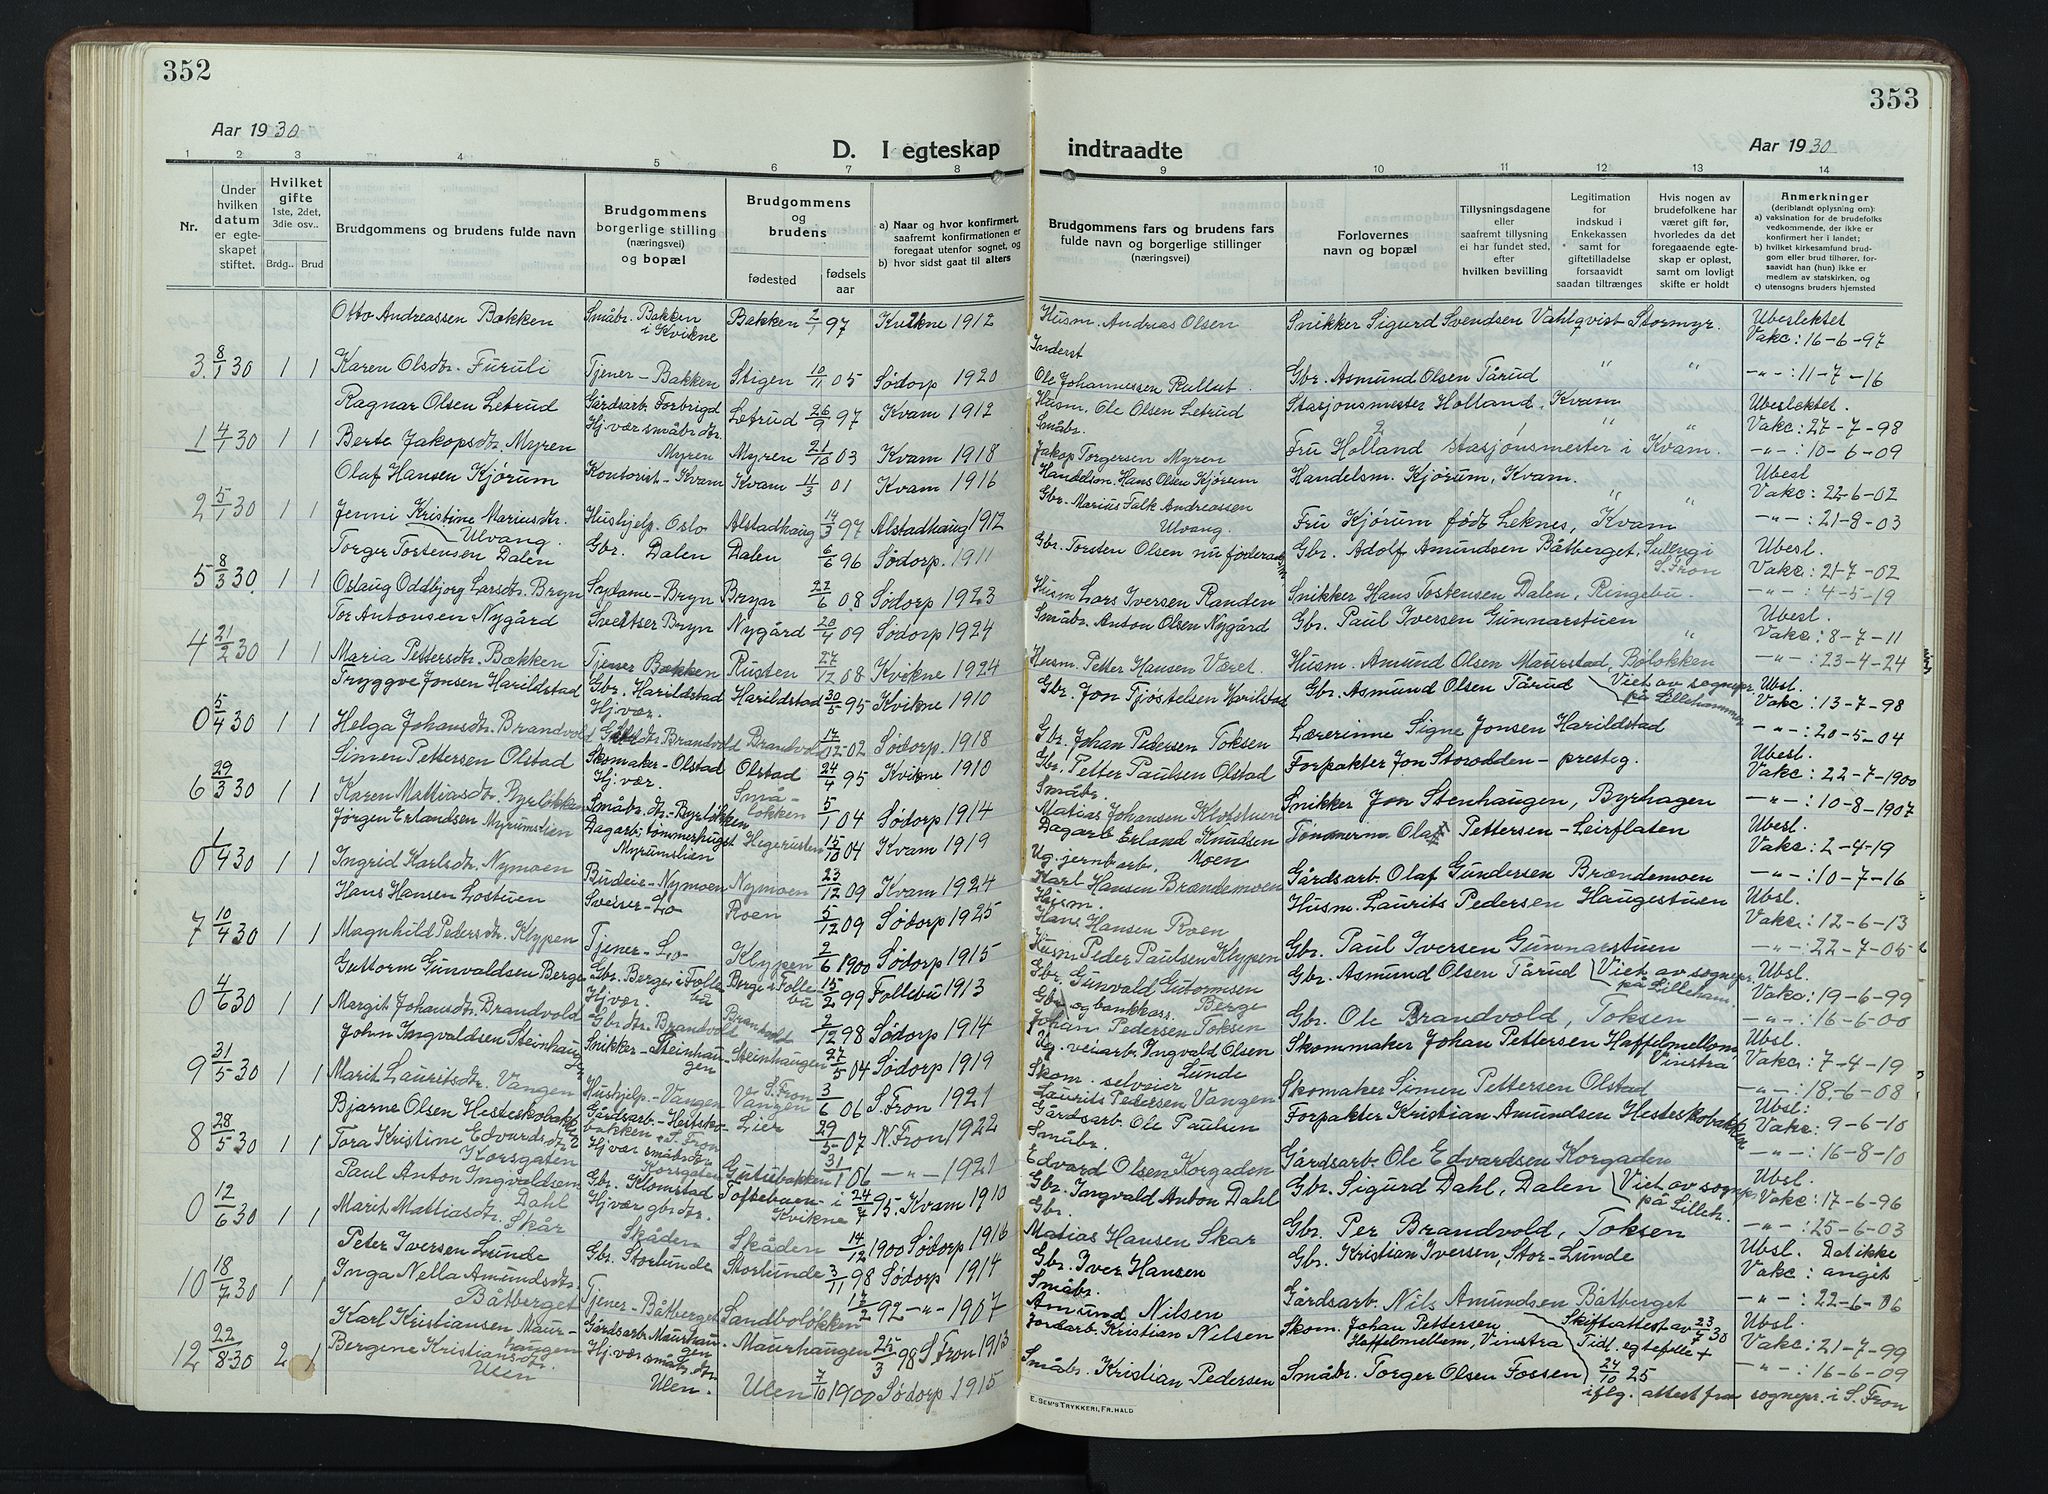 352
353
Aar 1930
D. I egteskap indtraadte
Aar 1930
1 2 3 4 5 6 7 8 9 10 11 12 13 14
Nr.
Under hvilken datum er egteskapet stiftet.
Hvilket gifte 1ste, 2det, 3die osv..
Brdg.. Brud
Brudgommens og brudens fulde navn
Brudgommens borgerlige stilling (næringsvei) og bopæl
Brudgommens og brudens
fødested
fødselsaar
a) Naar og hvor konfirmert, saafremt konfirmationen er foregaat utenfor sognet, og
b) hvor sidst gaat til alters
Brudgommens fars og brudens fars fulde navn og borgerlige stillinger (næringsvei)
Forlovernes navn og bopæl
Tillysningsdagene eller saafremt tillysning ei har fundet sted, efter hvilken bevilling
Legitimation for indskud i Enkekassen samt for giftetilladelse forsaavidt saadan tiltrænges
Hvis nogen av brudefolkene har været gift før, hvorledes da det foregaaende egteskap er opløst, samt om lovlig skifte er holdt
Anmerkninger (deriblandt oplysning om):
a) vaksination for de brudefolks vedkommende, der ikke er konfirmert her i landet;
b) hvilket kirkesamfund brudgom eller brud tilhører, forsaavidt han (hun) ikke er medlem av statskirken, og
c) utensogns bruders hjemsted
Otto Andreassen Bakken Småbr. Bakken i Kvikne Bakken 2/1 97 Kvikne 1912 Husm. Andreas Olsen Snikker Sigurd Svendsen Vahlqvist Stormyr. Ubeslektet Vakc: 16-6-97
3. 8/1 30 1 1 Karen Olsdtr. Furuli Tjener - Bakken Stigen 10/11 05 Sødorp 1920 Inderst Ole Johannessen Rallut. Gbr. Asmund Olsen Tårud " " -"-: 11-7-16
Ragnar Olsen Letrud Gårdsarb. Forbrigd Letrud 26/9 97 Kvam 1912 Husm. Ole Olsen Letrud Stasjonsmester Holland, Kvam Ubeslektet. Vakc: 27-7-98
1 4/1 30 1 1 Berte Jakopsdtr. Myren Hj. vær småbr. dtr. Myren Myren 21/10 03 Kvam 1918 Småbr. Jakop Torgersen Myren Fru Holland stasjonsmester i Kvam. -"-: 10-6-09
Olaf Hansen Kjørum Kontorist - Kvam Kvam 11/3 01 Kvam 1916 Handelsm. Hans Olsen Kjørum Handelsm. Kjørum, Kvam. Ubesl Vakc: 22-6-02
2 5/1 30 1 1 Jenni Kristine Mariusdtr. Ulvang. Hushjelp. Oslo Alstadhaug 14/3 97 Alstadhaug 1912 Gbr. Marius Falk Andreassen Ulvang. Fru Kjørum født Leknes, Kvam -"-: 21-8-03
Torger Tostensen Dalen Gbr. Dalen Dalen 6/6 96 Sødorp. 1911 Gbr. Torsten Olsen nu føderådsm. Gbr. Adolf Amundsen Båtberget, Sulheng i S. Fron Ubesl. Vakc: 21-7-02
5 8/3 30. 1 1 Oslaug Oddbjørg Larsdtr. Bryn Sydame - Bryn Bryn 27/6 08 Sødorp 1923 Husm Lars Iversen Randen Snikker Hans Tostensen Dalen, Ringebu. -"-: 4-5-19
Tor Antonsen Nygård Sveitser Bryn Nygård 20/4 09 Sødorp 1924 Småbr. Anton Olsen Nygård Gbr. Paul Iversen Gunnarstuen Ubesl. Vakc: 8-7-11
4 21/2 30 1 1 Maria Pettersdtr. Bækken Tjener Bækken Rusten 27/12 08 Kvikne 1924 Husm. Petter Hansen Været. Husm. Amund Olsen Maurstad, Bølokken -"-: 23-4-24
Tryggve Jonsen Harildstad Gbr. Harildstad Harildstad 30/5 95 Kvikne 1910 Gbr. Jon Tjøstelsen Harilstad Gbr. Asmund Olsen Tårud Viet av sognepr. på Lillehammer Ubsl. Vakc: 13-7-98
0 5/4 30 1 1 Helga Johansdtr. Brandvold Hj. vær. Gbr. dtr. Brandvold Brandvold 17/12 02 Sødorp. 1918 Gbr. Johan Pedersen Toksen Lærerinne Signe Jonsen Harildstad -"-: 20-5-04
Simen Pettersen Olstad Skomaker - Olstad Olstad 24/4 95 Kvikne 1910 Gbr. Petter Paulsen Olstad Forpakter Jon Storodden - presteg. Ubesl. Vakc: 22-7-1900
6 29/3 30 1 1 Karen Mattiasdtr. Byrløkken Hj. vær. Småbr. dtr. - Byrløkken Småløkken 5/1 04 Sødorp 1914 Småbr. Matias Johansen Klofstuen Snikker Jon Stenhaugen, Byrhagen -"-: 10-8-1907
Jørgen Erlandsen Myrumslien Dagarb. tømmerhugst Myrumslien Hegerusten 15/10 04 Kvam 1919 Dagarb. Erland Knudsen Moen Tømmerm Olaf Pettersen - Leirflaten Ubesl. Vakc: 2-4-19
0 1/4 30 1 1 Ingrid Karlsdtr. Nymoen Budeie - Nymoen Nymoen 23/12 09 Kvam 1924 Ug. jernbarb. Karl Hansen Brændemoen Gårdsarb. Olaf Gundersen Brændemoen -"-: 10-7-16
Hans Hansen Lostuen Sveiser - Lo Roen 5/12 09 Sødorp 1925 Husm. Hans Hansen Roen Husm. Laurits Pedersen Haugestuen Ubsl. Vakc: 12-6-13
7 10/4 30 1 1 Magnhild Pedersdtr. Klypen Tjener - Lo Klypen 2/6 1900 Sødorp 1915 Husm Peder Paulsen Klypen Gbr. Paul Iversen Gunnarstuen -"-: 22-7-05
Guttorm Gunvaldsen Berge Gbr. Berge i Follebu Berge i Follebu 15/2 99 Follebu 1913 Gbr. Gunvald Gutormsen Berge Gbr. Asmund Olsen Tårud Viet av sognepr. på Lilleham. Ubsl. Vakc: 19-6-99
0 4/6 30 1 1 Margit Johansdtr. Brandvold Hj. vær. Gbr. dtr. Brandvold Brandvold 2/12 98 Sødorp 1914 Gbr. og bankkass. Johan Pedersen Toksen Gbr. Ole Brandvold, Toksen -"-: 16-6-00
John Ingvaldsen Steinhaugen Snikker - Steinhaugen Steinhaugen 27/5 04 Sødorp 1919 Ug. veiarb. Ingvald Olsen Lunde Skommaker Johan Pettersen Haffelmellom, Vinstra Ubsl. Vakc: 7-4-19
9 31/5 30 1 1 Marit Lauritsdtr. Vangen Hushjelp - Vangen Vangen S. Fron 3/6 06 S. Fron 1921 Skom. - selveier Laurits Pedersen Vangen Skomaker Simen Pettersen Olstad -"-: 18-6-08
Bjarne Olsen Hesteskobakken Gårdsarb. - Hestskobakken, S. Fron Lier 29/5 07 N. Fron 1922 Gårdsarb. Ole Paulsen Forpakter Kristian Amundsen Hesteskobakken Ubsl: Vakc: 9-6-10
8 28/5 30 1 1 Tora Kristine Edvardsdtr. Korsgaten Hj. vær småbr. dtr Korsgaten Gutubakken 31/1 06 -"- 1921 Småbr. Edvard Olsen Korgaden Gårdsarb. Ole Edvardsen Korgaden -"-: 16-8-10
Paul Anton Ingvaldsen Dahl Gbr. Klomstad Toftebuen i Kvikne 24/7 95. Kvam 1910 Gbr. Ingvald Anton Dahl Gbr. Sigurd Dahl, Dalen Viet av sognepr på Lilleh. Ubsl. Vakc: 17-6-96
0 12/6 30 1 1 Marit Mattiasdtr. Skår Hj. vær gbr. dtr. Skåden Skåden 14/12 1900 Sødorp 1916 Gbr. Matias Hansen Skar Gbr. Per Brandvold, Toksen -"-: 25-6-03
Peter Iversen Lunde Gbr. Storlunde Storlunde 3/11 98 Sødorp 1914 Gbr. Iver Hansen Gbr. Kristian Iversen, Stor-Lunde Ubsl. Dat ikke Vakc: angit
10 18/7 30 1 1 Inga Nella Amundsdtr. Båtberget Tjener - Båtberget Sandboløkken 17/2 92 -"- 1907 Småbr. Amund Nilsen Gårdsarb. Nils Amundsen Båtberget -"-: 22-6-06
Karl Kristiansen Maurhaugen Gårdsarb. Maurhaugen Maurhaugen 25/3 98 S. Fron 1913 Jordarb. Kristian Nilsen Skom. Johan Pettersen Haffelmellem, Vinstra Skifteattest av 23/7 30 Tidl. egtefelle + 24/10 25 Ubsl. Vakc: 21-7-99
12 22/8 30 2 1 Bergene Kristiansdtr. Ulen Hj. vær småbr. dtr Ulen. Ulen 7/10 1900 Sødorp 1915 Småbr. Kristian Pedersen Småbr. Torger Olsen Fossen iflg. attest fra sognepr. i S. Fron -"-: 16-6-09
E. SEM'S TRYKKERI, FR. HALD